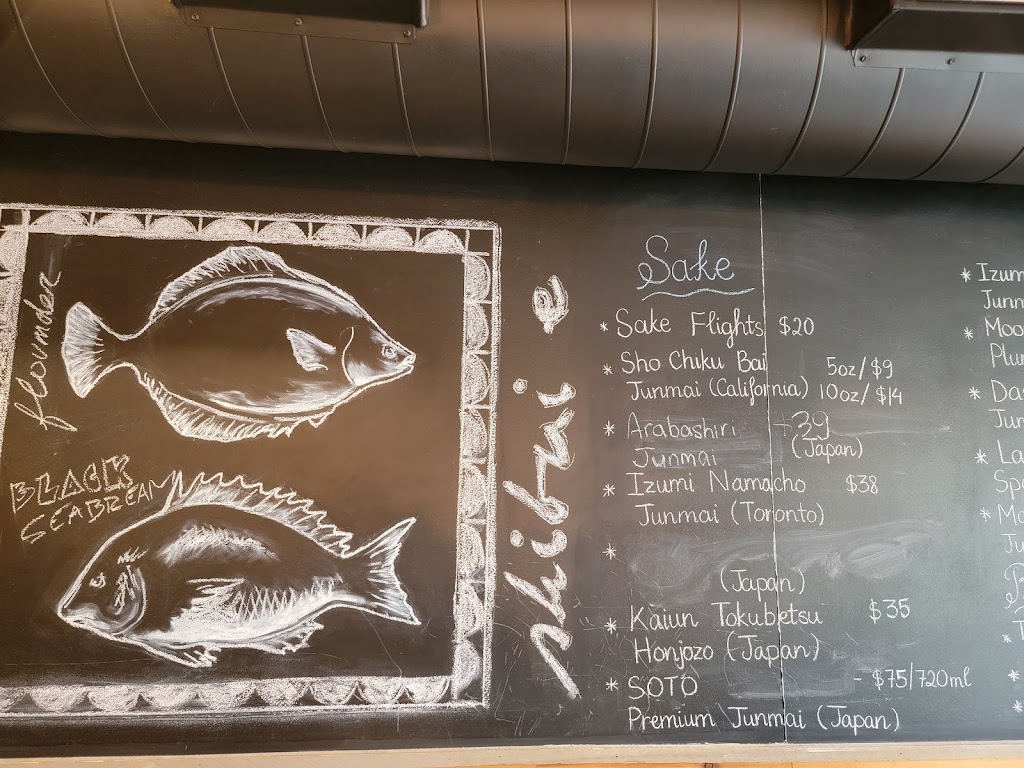 flounder
BLACK
SEABREAM
Sake
* Sake Flights $20
* Sho Chiku Bai 5oz/$9
Junmai (California) 10oz/$14
* Arabashiri $39
Junmai (Japan)
* Izumi Namacho $38
Junmai (Toronto)
*
(Japan)
* Kaiun Tokubetsu $35
Honjozo (Japan)
* SOTO - $75/720ml
Premium Junmai (Japan)
* Izum
Junn
* Moo
Plu
* Da
Jun
* La
Sp
* Mo
Ju